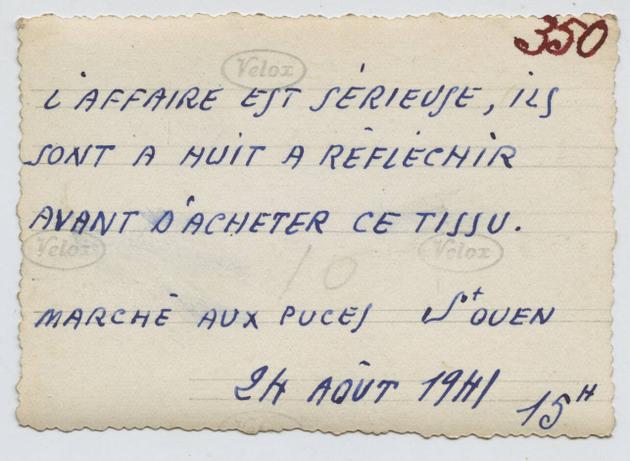 350
Velox
L'AFFAIRE EST SÉRIEUSE, ILS
SONT A HUIT A RÉFLÉCHIR
AVANT D'ACHETER CE TISSU.
Velox
Velox
10
MARCHÉ AUX PUCES St OUEN
24 AOÛT 1941
15H